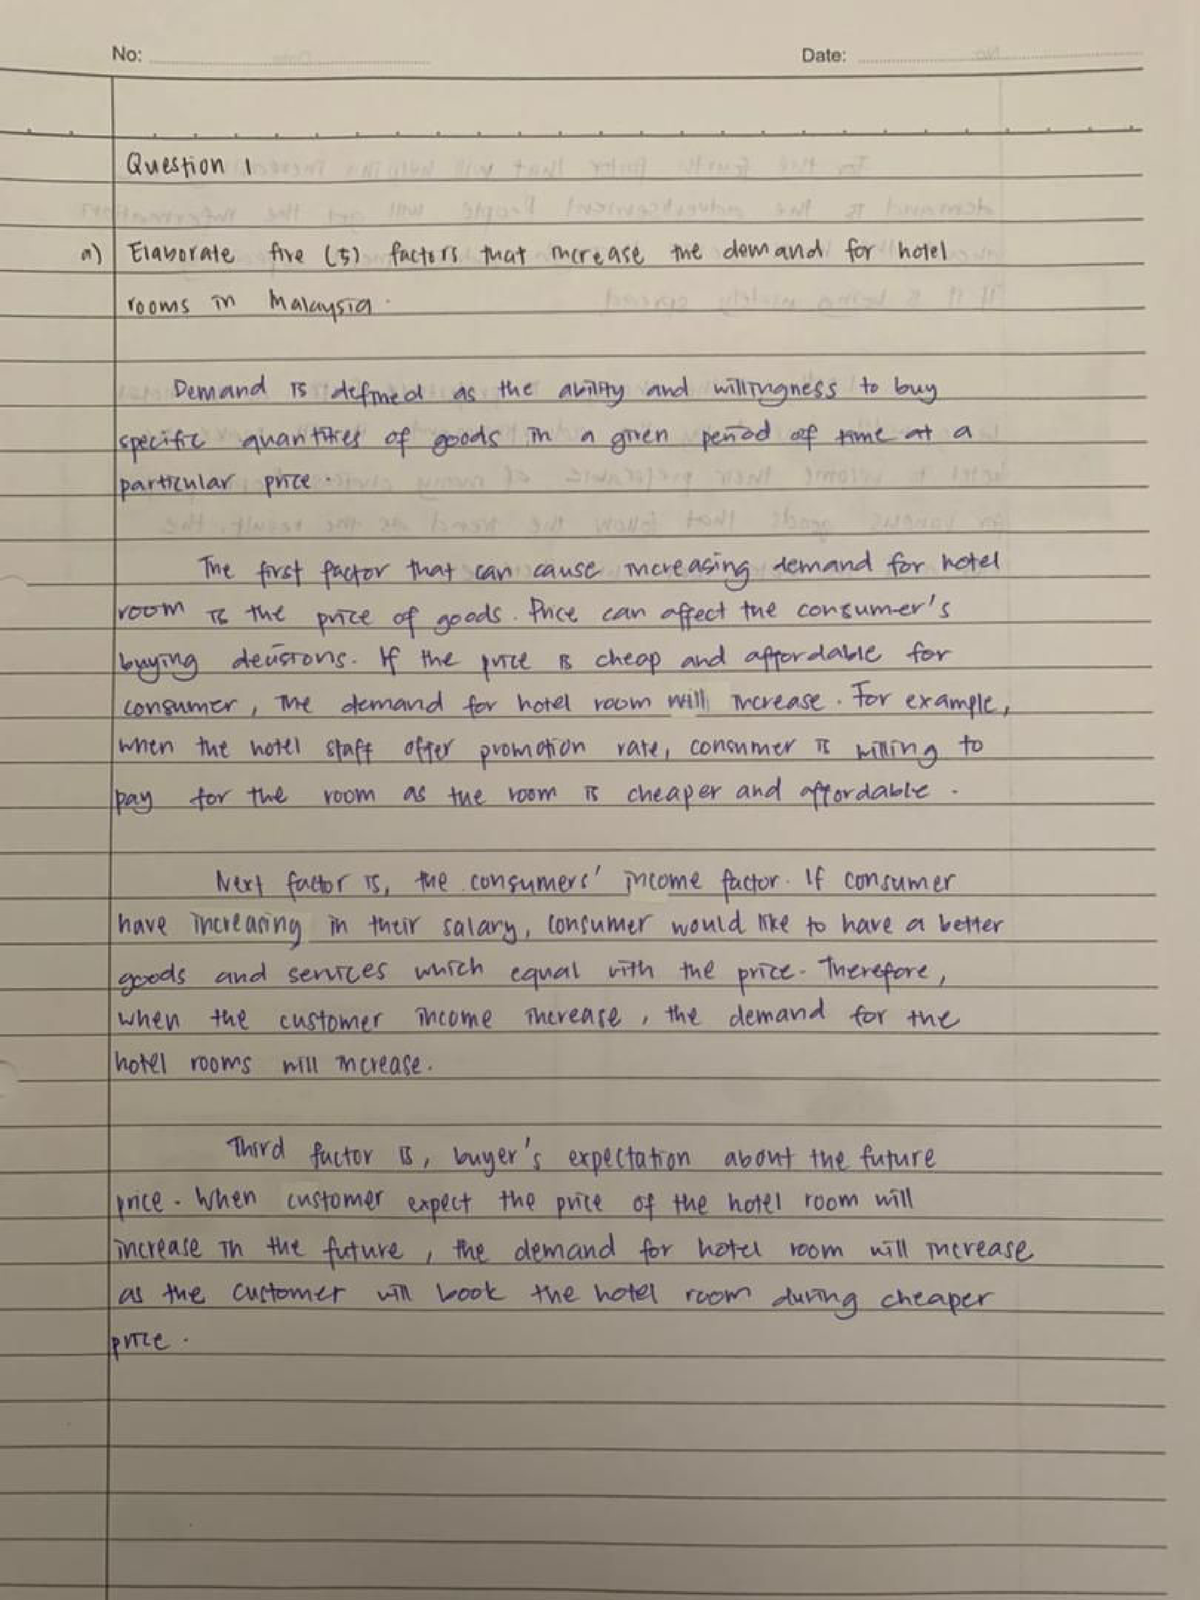 No:
Date:
Question 1
a) Elaborate five (5) factors that increase the demand for hotel
rooms in Malaysia.
Demand is defined as the ability and willingness to buy
specific quantities of goods in a given period of time at a
particular price.
The first factor that can cause increasing demand for hotel
room is the price of goods. Price can affect the consumer's
buying decisions. If the price is cheap and affordable for
consumer, the demand for hotel room will increase. For example,
when the hotel staff offer promotion rate, consumer is willing to
pay for the room as the room is cheaper and affordable.
Next factor is, the consumers' income factor. If consumer
have increasing in their salary, consumer would like to have a better
goods and services which equal with the price. Therefore,
when the customer income increase, the demand for the
hotel rooms will increase.
Third factor is, buyer's expectation about the future
price. When customer expect the price of the hotel room will
increase in the future, the demand for hotel room will increase
as the customer will book the hotel room during cheaper
price.